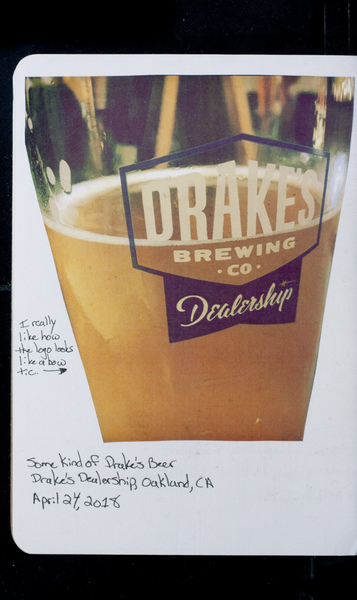 DRAKE'S
BREWING
· CO ·
Dealership
I really
like how
the logo looks
like a bow
tie. →
Some Kind of Drake's Beer
Drake's Dealership, Oakland, CA
April 24, 2018